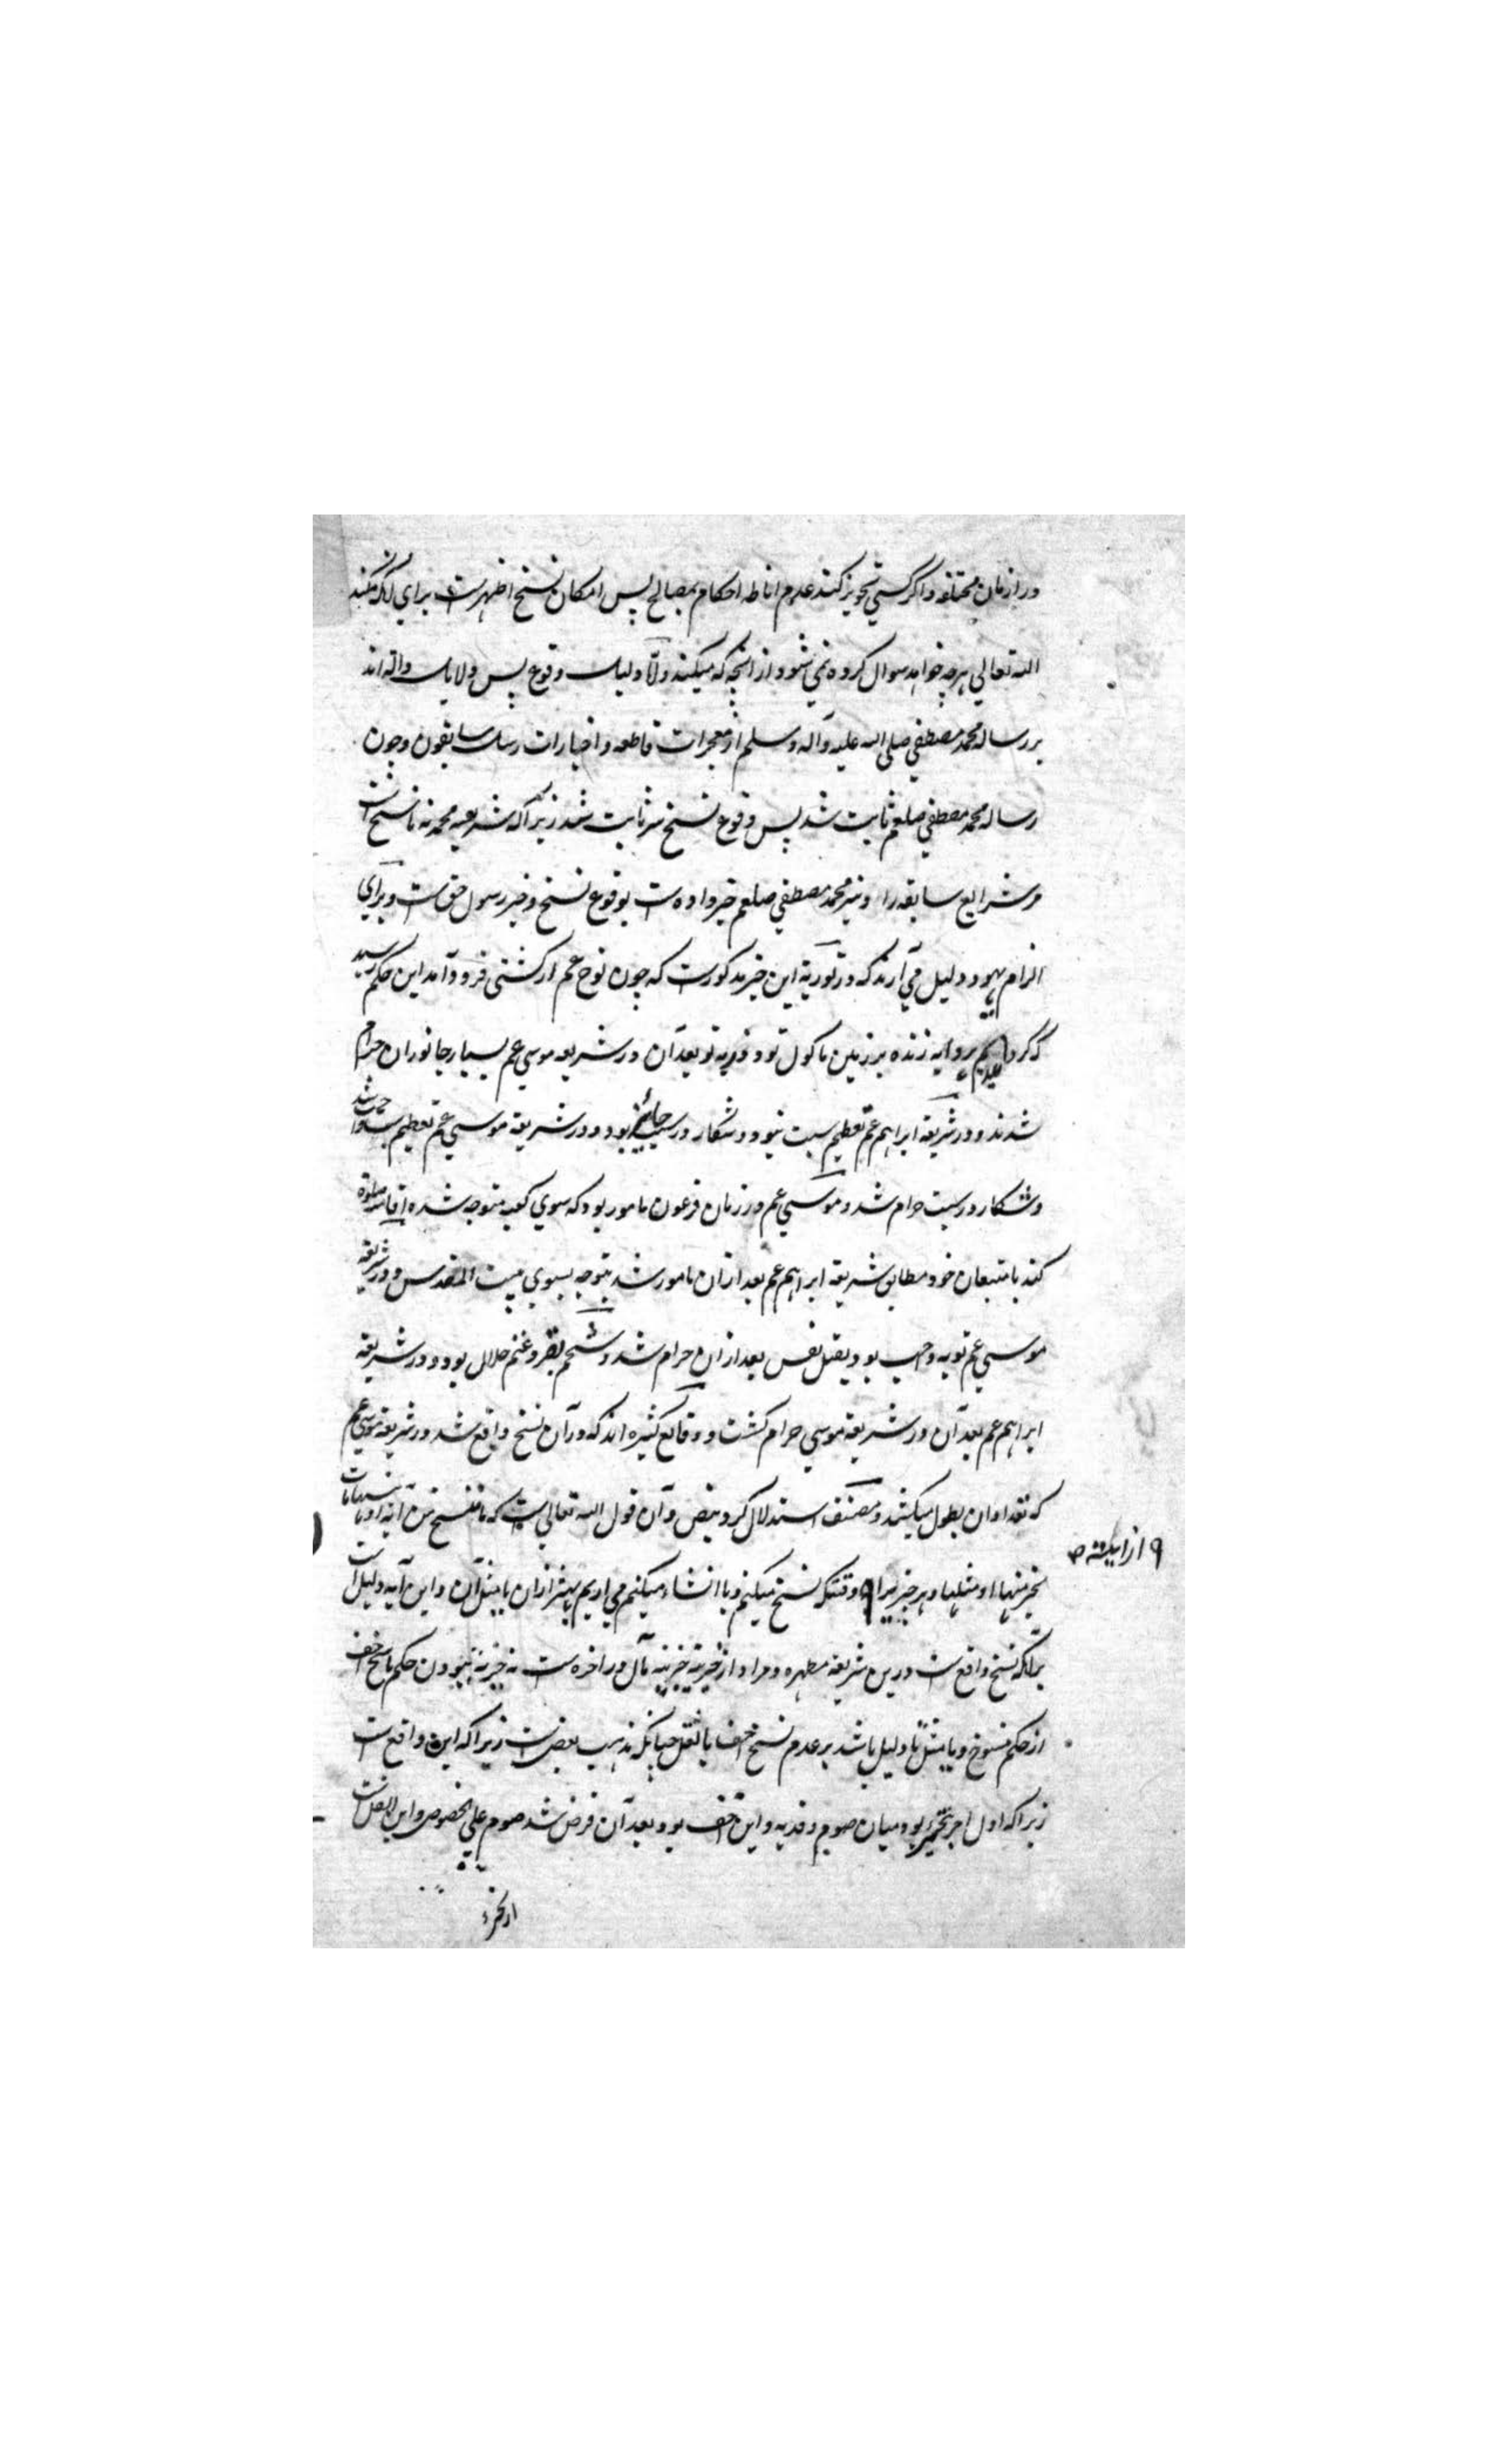 در ازمان مختلفه و اگر کسی تجویز کند عدم اناطه احکام بمصالح پس امکان نسخ اظهرست برای آنکه میکند
الله تعالی هرچه خواهد سوال کرده نمی شود از انچه که میکند و اما دلیل وقوع پس دلایل داله اند
بر رساله محمد مصطفی صلی الله علیه و آله وسلم از معجزات قاطعه و اخبارات رسل سابقون و چون
رساله محمد مصطفی صلعم ثابت شد پس وقوع نسخ نیز ثابت شد زیراکه شریعه محمدیه ناسخ است
مر شرایع سابقه را و نیز محمد مصطفی صلعم خبر داده است بوقوع نسخ و خبر رسول حق است و برای
الزام یهود دلیل می آرند که در توریة این خبر مذکورست که چون نوح عم از کشتی فرود آمد این حکم رسید
که کردیم هر دابه زنده بر زمین ماکول تو و ذریه تو بعد آن در شریعه موسی عم بسیار جانوران حرام
شدند و در شریعة ابراهیم عم تعظیم سبت نبود و شکار در سبت جائز بود و در شریعة موسی عم تعظیم سبت واجب شد
و شکار در سبت حرام شد و موسی عم در زمان فرعون مامور بود که سوی کعبه متوجه شده اقامت صلوة
کند با متبعان خود مطابق شریعة ابراهیم عم بعد ازان مامور شد بتوجه بسوی بیت المقدس و در شریعة
موسی عم توبه واجب بود بقتل نفس بعد ازان حرام شد و شحم بقر و غنم حلال بود و در شریعة
ابراهیم عم بعد آن در شریعة موسی حرام گشت و وقایع کثیره اند که در آن نسخ واقع شد در شریعة موسی عم
که تعداد آن بطول میکشد و مصنف استدلال کرد بنص و آن قول الله تعالی است که ما ننسخ من آیة او ننسها نات
بخیر منها او مثلها و هر چیز را وقتیکه نسخ میکنیم و یا انشاء میکنیم می آریم بهتر ازان یا مثل آن و این آیه دلیل است
۹ از آیة ص
برآنکه نسخ واقع است درین شریعة مطهره و مراد از خیریة خیریة مآل در اخره است نه خیریة نبودن حکم ناسخ اخف
از حکم منسوخ و یا مثل تا دلیل باشد بر عدم نسخ اخف باثقل چنانکه مذهب بعض است زیراکه این واقع است
زیراکه اول امر بتخییر بود میان صوم و فدیه و این اخف بود بعد آن فرض شد صوم علی الخصوص و این اثقل است